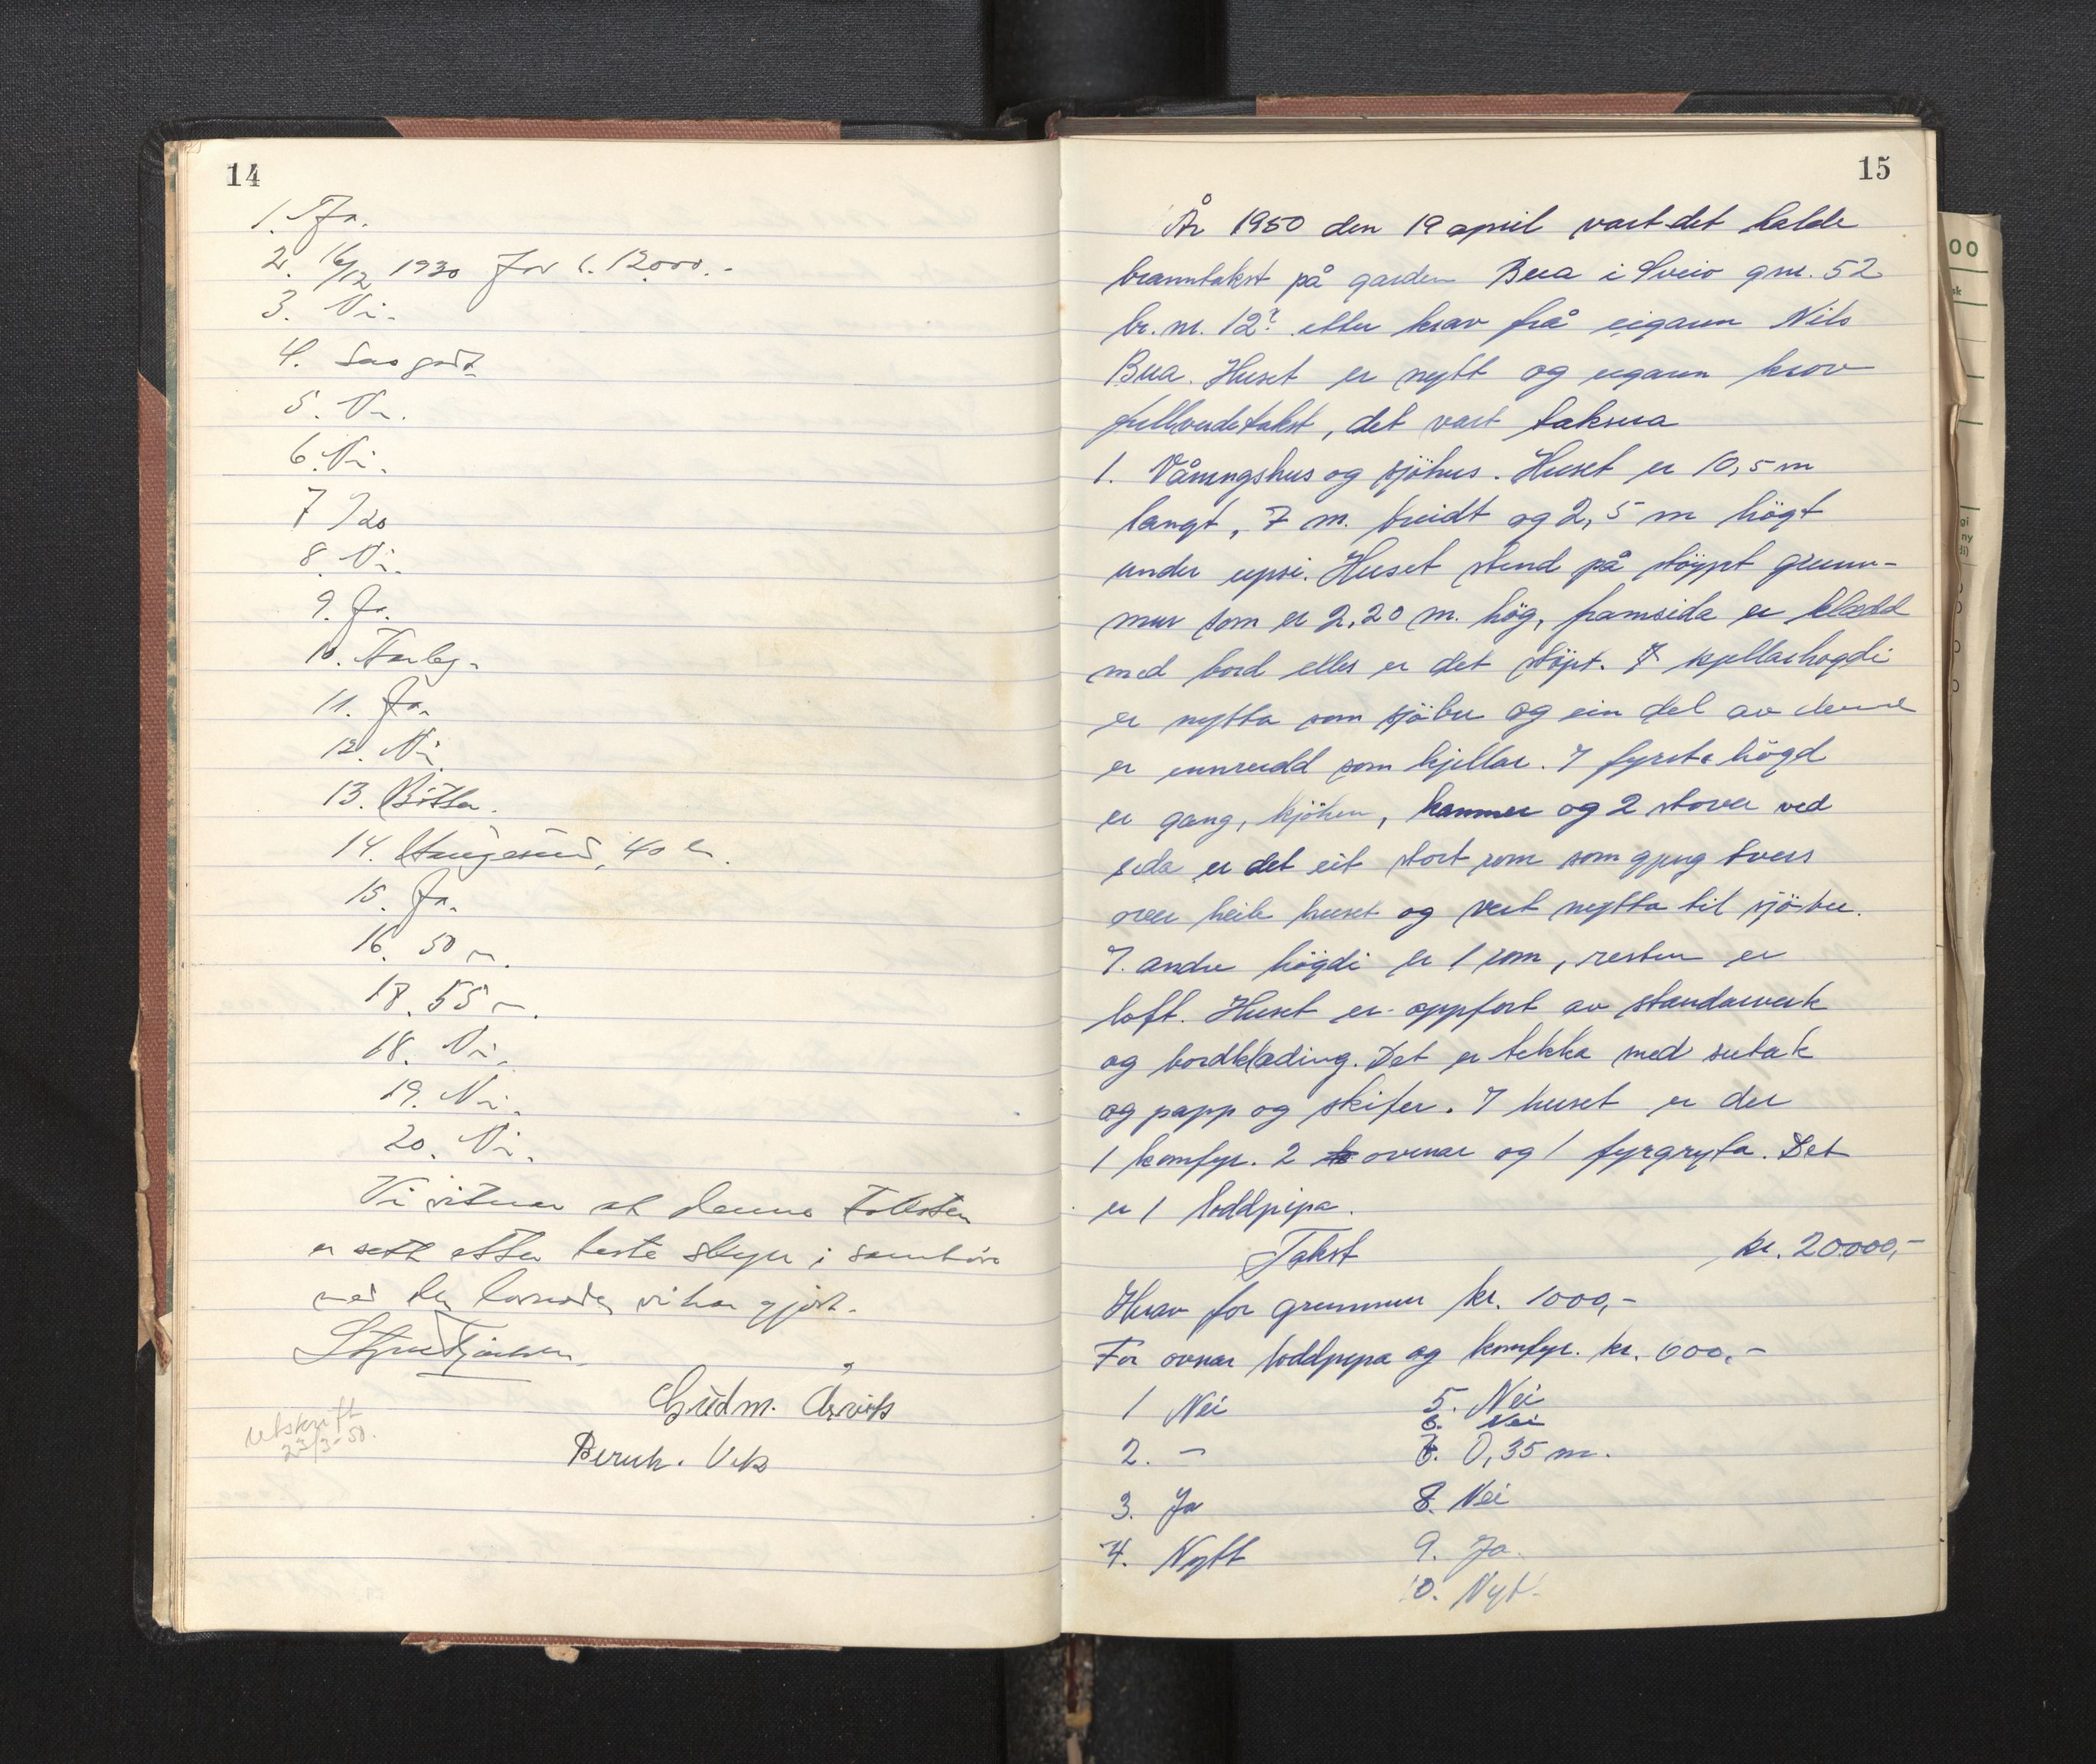 14
1. Ja.
2. 16/12 1930 for k. 12000.-
3. Nei.
4. Svo godt
5. Nei.
6. Nei.
7 1/20
8. Nei.
9. Ja.
10. Farleg.
11. Ja.
12. Nei.
13. Bötter.
14. Haugesund, 40 km.
15. Ja.
16. 50 m.
18. 55 m.
18. Nei.
19. Nei.
20. Nei.
Vi vitnar at denne taksten
er sett etter beste skyn i samhøve
med den lovnaden vi har gjort.
Gudm.
Bernh.
utskrift
23/3-50.
15
År 1950 den 19 april vart det halde
branntakst på garden Bua i Sveio gnr. 52
br. nr. 12? etter krav frå eigaren Nils
Bua. Huset er nytt og eigaren krov
fullverdetakst, det vart taksera
1. Våningshus og sjöhus. Huset er 10,5 m
langt, 7 m. breidt og 2,5 m högt
under upsi. Huset stend på stöypt grunn-
mur som er 2,20 m. hög, framsida er klædd
med bord elles er det stöpt. I kjellarhogdi
er nytta som sjöbu og ein del av denne
er innreidd som kjellar. I fyrste högd
er gang, kjöken, kammer og 2 stover ved
sida er det eit stort rom som gjeng tvers
over heile huset og vert nytta til sjöbu.
I. andre högdi er 1 rom, resten er
loft. Huset er oppfort av standarverk
og bordklæding. Det er tekka med sutak
og papp og skifer. I huset er der
1 komfyr. 2 ovnar og 1 fyrgryta. Det
er 1 loddpipa.
Takst kr. 20000,-
Herav for grunnmur kr. 1000,-
For ovnar loddpipa og komfyr. kr. 600.-
1 Nei 5. Nei
6. Nei
2. - 7. 0,35 m.
3. Ja 8. Nei
4. Nytt 9. Ja.
10. Nytt.